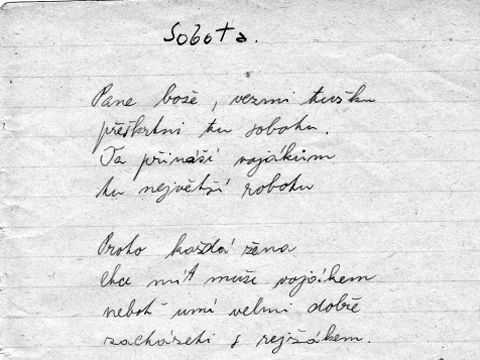 Sobota.
Pane bože, vezmi tušku
přeškrtni tu sobotu.
Ta přináší vojákům
tu největší robotu
Proto každá žena
chce mít muže vojákem
neboť umí velmi dobře
zacházeti s rejžákem.